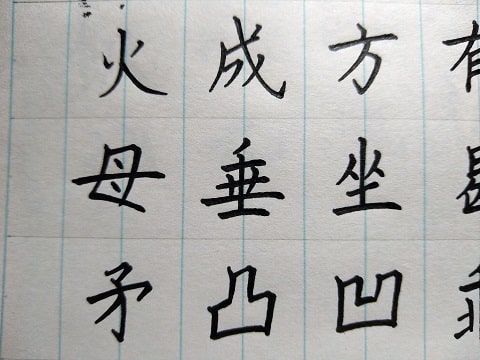 火成方有
母垂坐
矛凸凹乖